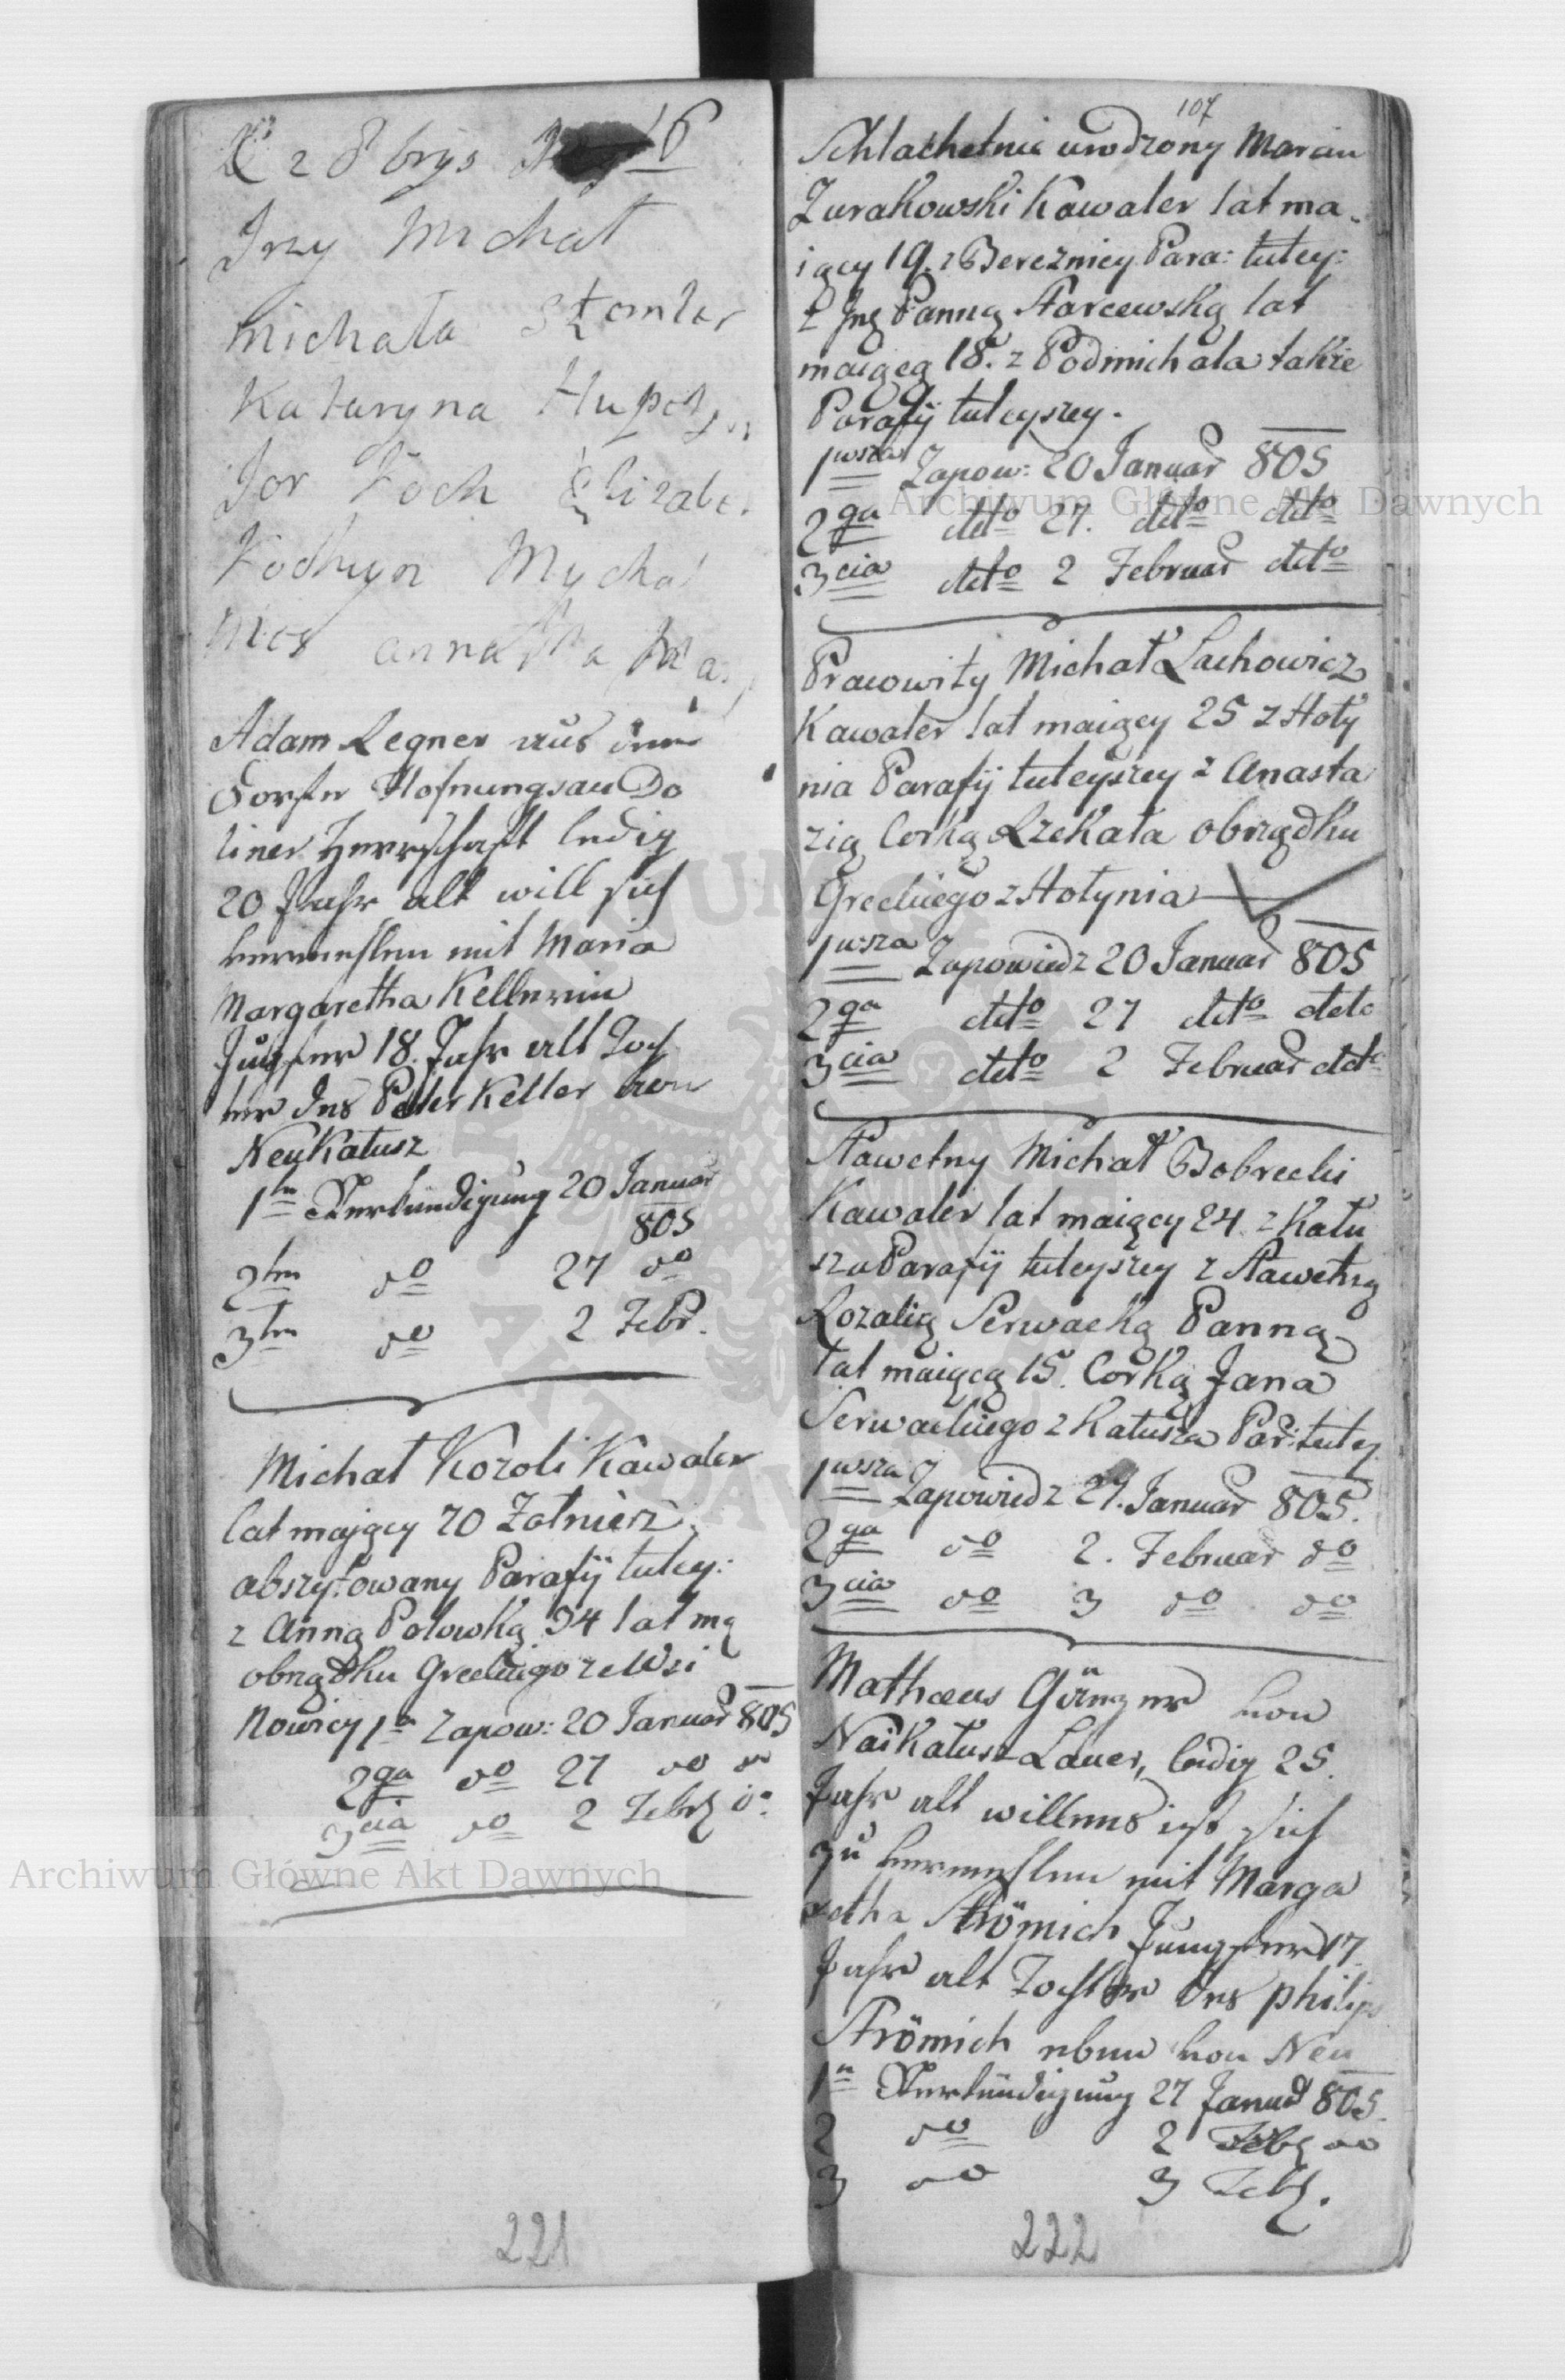 2 8 brys 16
Jrzy Michał
Michała Sztomler
Kataryna
Jor Koch Elizabe
Mychal
anna
Adam Legner aus dem
Dorfe Hofnungsau Do
liner Herrschaft ledig
20 Jahr alt will sich
vermehlen mit Maria
Margaretha Kellerin
Jungfer 18. Jahr alt Toch
ter des Peter Keller von
NeuKałusz
1te Verkündigung 20 Januar
805
2ten do 27 do
3ten do 2 Febr.
Michał Kozoli Kawaler
lat mający 70 Żołnierz
abszytowany Parafij tutey:
z Anną Polowką 34 lat mą
obrządku Greckiego ze Wsi
Nowicy 1a Zapow: 20 Januar 805
2ga do 27 do do
3cia do 2 Febr do
Archiwum Główne Akt Dawnych
221
107
Schlachetnie urodzony Marcin
Zurakowski Kawaler lat ma
iący 19. z Bereznicy Para: tutey:
z Jmą Panną Starcewską lat
maiącą 18. z Podmichala także
Parafij tuteyszey.
1wsza Zapow: 20 Januar 805
Archiwum Główne Akt Dawnych
2ga detto 27. detto detto
3cia detto 2 Februar detto
Pracowity Michał Lachowicz
Kawaler lat maiący 25 z Hoły
nia Parafij tuteyszey z Anasta
zią Corką Rzekała obrządku
Greckiego z Hołynia
1wsza Zapowiedz 20 Januar 805
2ga detto 27 detto detto
3cia detto 2 Februar detto
Sławetny Michał Bobrecki
Kawaler lat maiący 24. z Kału
sza Parafij tuteyszey z Sławetną
Rozalią Serwacką Panną
lat maiącą 15. Corką Jana
Serwackiego z Kałusza Par: tutey
1wsza Zapowiedz 27. Januar 805.
2ga do 2. Februar do
3cia do 3 do do
Mathaeus Gänzner von
NaiKałusz Lauer, ledig 25.
Jahr alt willens ist sich
zu vermehlen mit Marga
retha Strömich Jungfer 17
Jahr alt Tochter des Philip
Strömich eben von Neu
1te Verkündigung 27 Januar 805.
2 do 2 Febr do
3 do 3 Febr.
222